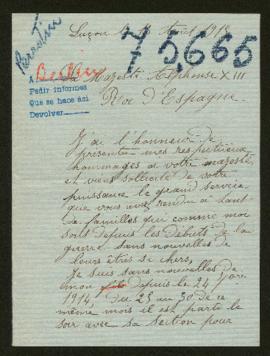 Luçon
1918
75,665
A
Berlin
Pedir informes
Que se hace aci
Devolver
Sa Majesté Alphonse XIII
Roi d'Espagne
J'ai l'honneur de
présenter mes respectueux
hommages à votre majesté
et viens sollicité de votre
puissance le grand service
que vous avez rendu à tant
de familles qui comme moi
sont depuis les débuts de la
guerre sans nouvelles de
leurs êtres si chers,
Je suis sans nouvelles de
mon fils depuis le 24
1914. Du 25 au 30 de ce
même mois il est parti le
soir avec sa section pour